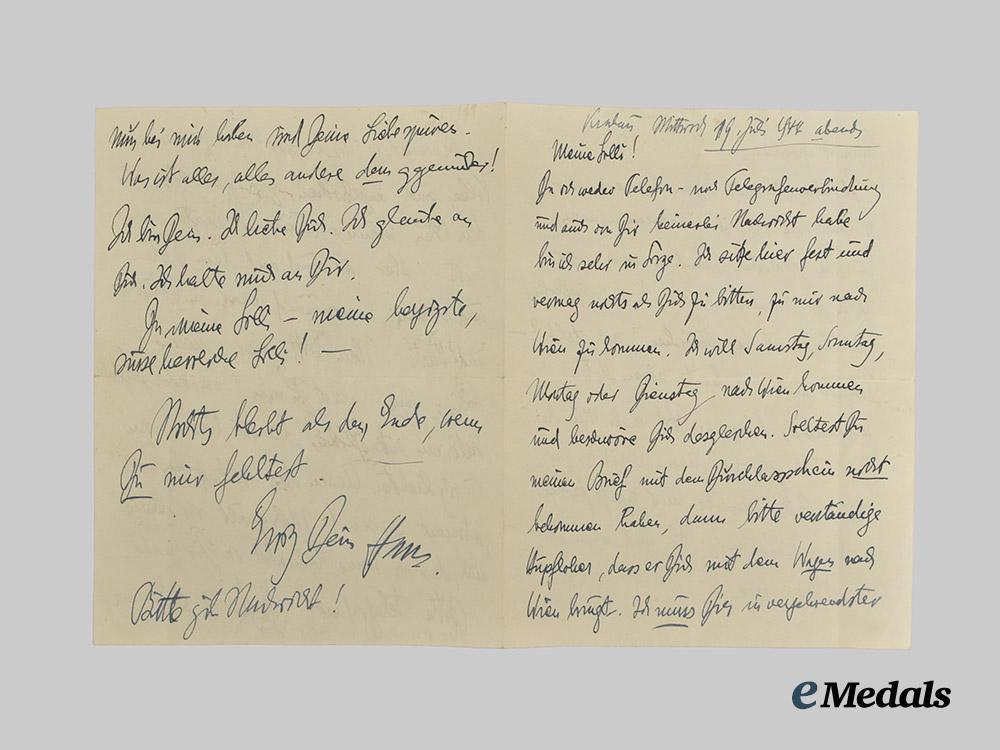 Mittwoch 19. Juli 1944 abends
Meine Lilli!
Da ich weder Telefon- noch Telegrafenverbindung
und auch von Dir keinerlei Nachricht habe
bin ich sehr in Sorge. Ich sitze hier fest und
vermag nichts als Dich zu bitten, zu mir nach
Wien zu kommen. Ich will Samstag, Sonntag,
Montag oder Dienstag nach Wien kommen
und beschwöre Dich desgleichen. Solltest Du
meinen Brief mit dem Durchlassschein nicht
bekommen haben, dann bitte verständige
Hupfloher, dass er Dich mit dem Wagen nach
Wien bringt. Ich muss Dich in verzehrendster
nun bei mir haben und Deine Liebe spüren.
Was ist alles, alles andere dem gegenüber!
Ich bin Dein. Ich liebe Dich. Ich glaube an
Dich. Ich halte mich an Dir.
Du meine Lilli – meine herzigste,
süsse herrliche Lilli! —
Nichts bleibt als das Ende, wenn
Du mir fehltest
Ewig Dein Hans.
Bitte gib Nachricht!
eMedals